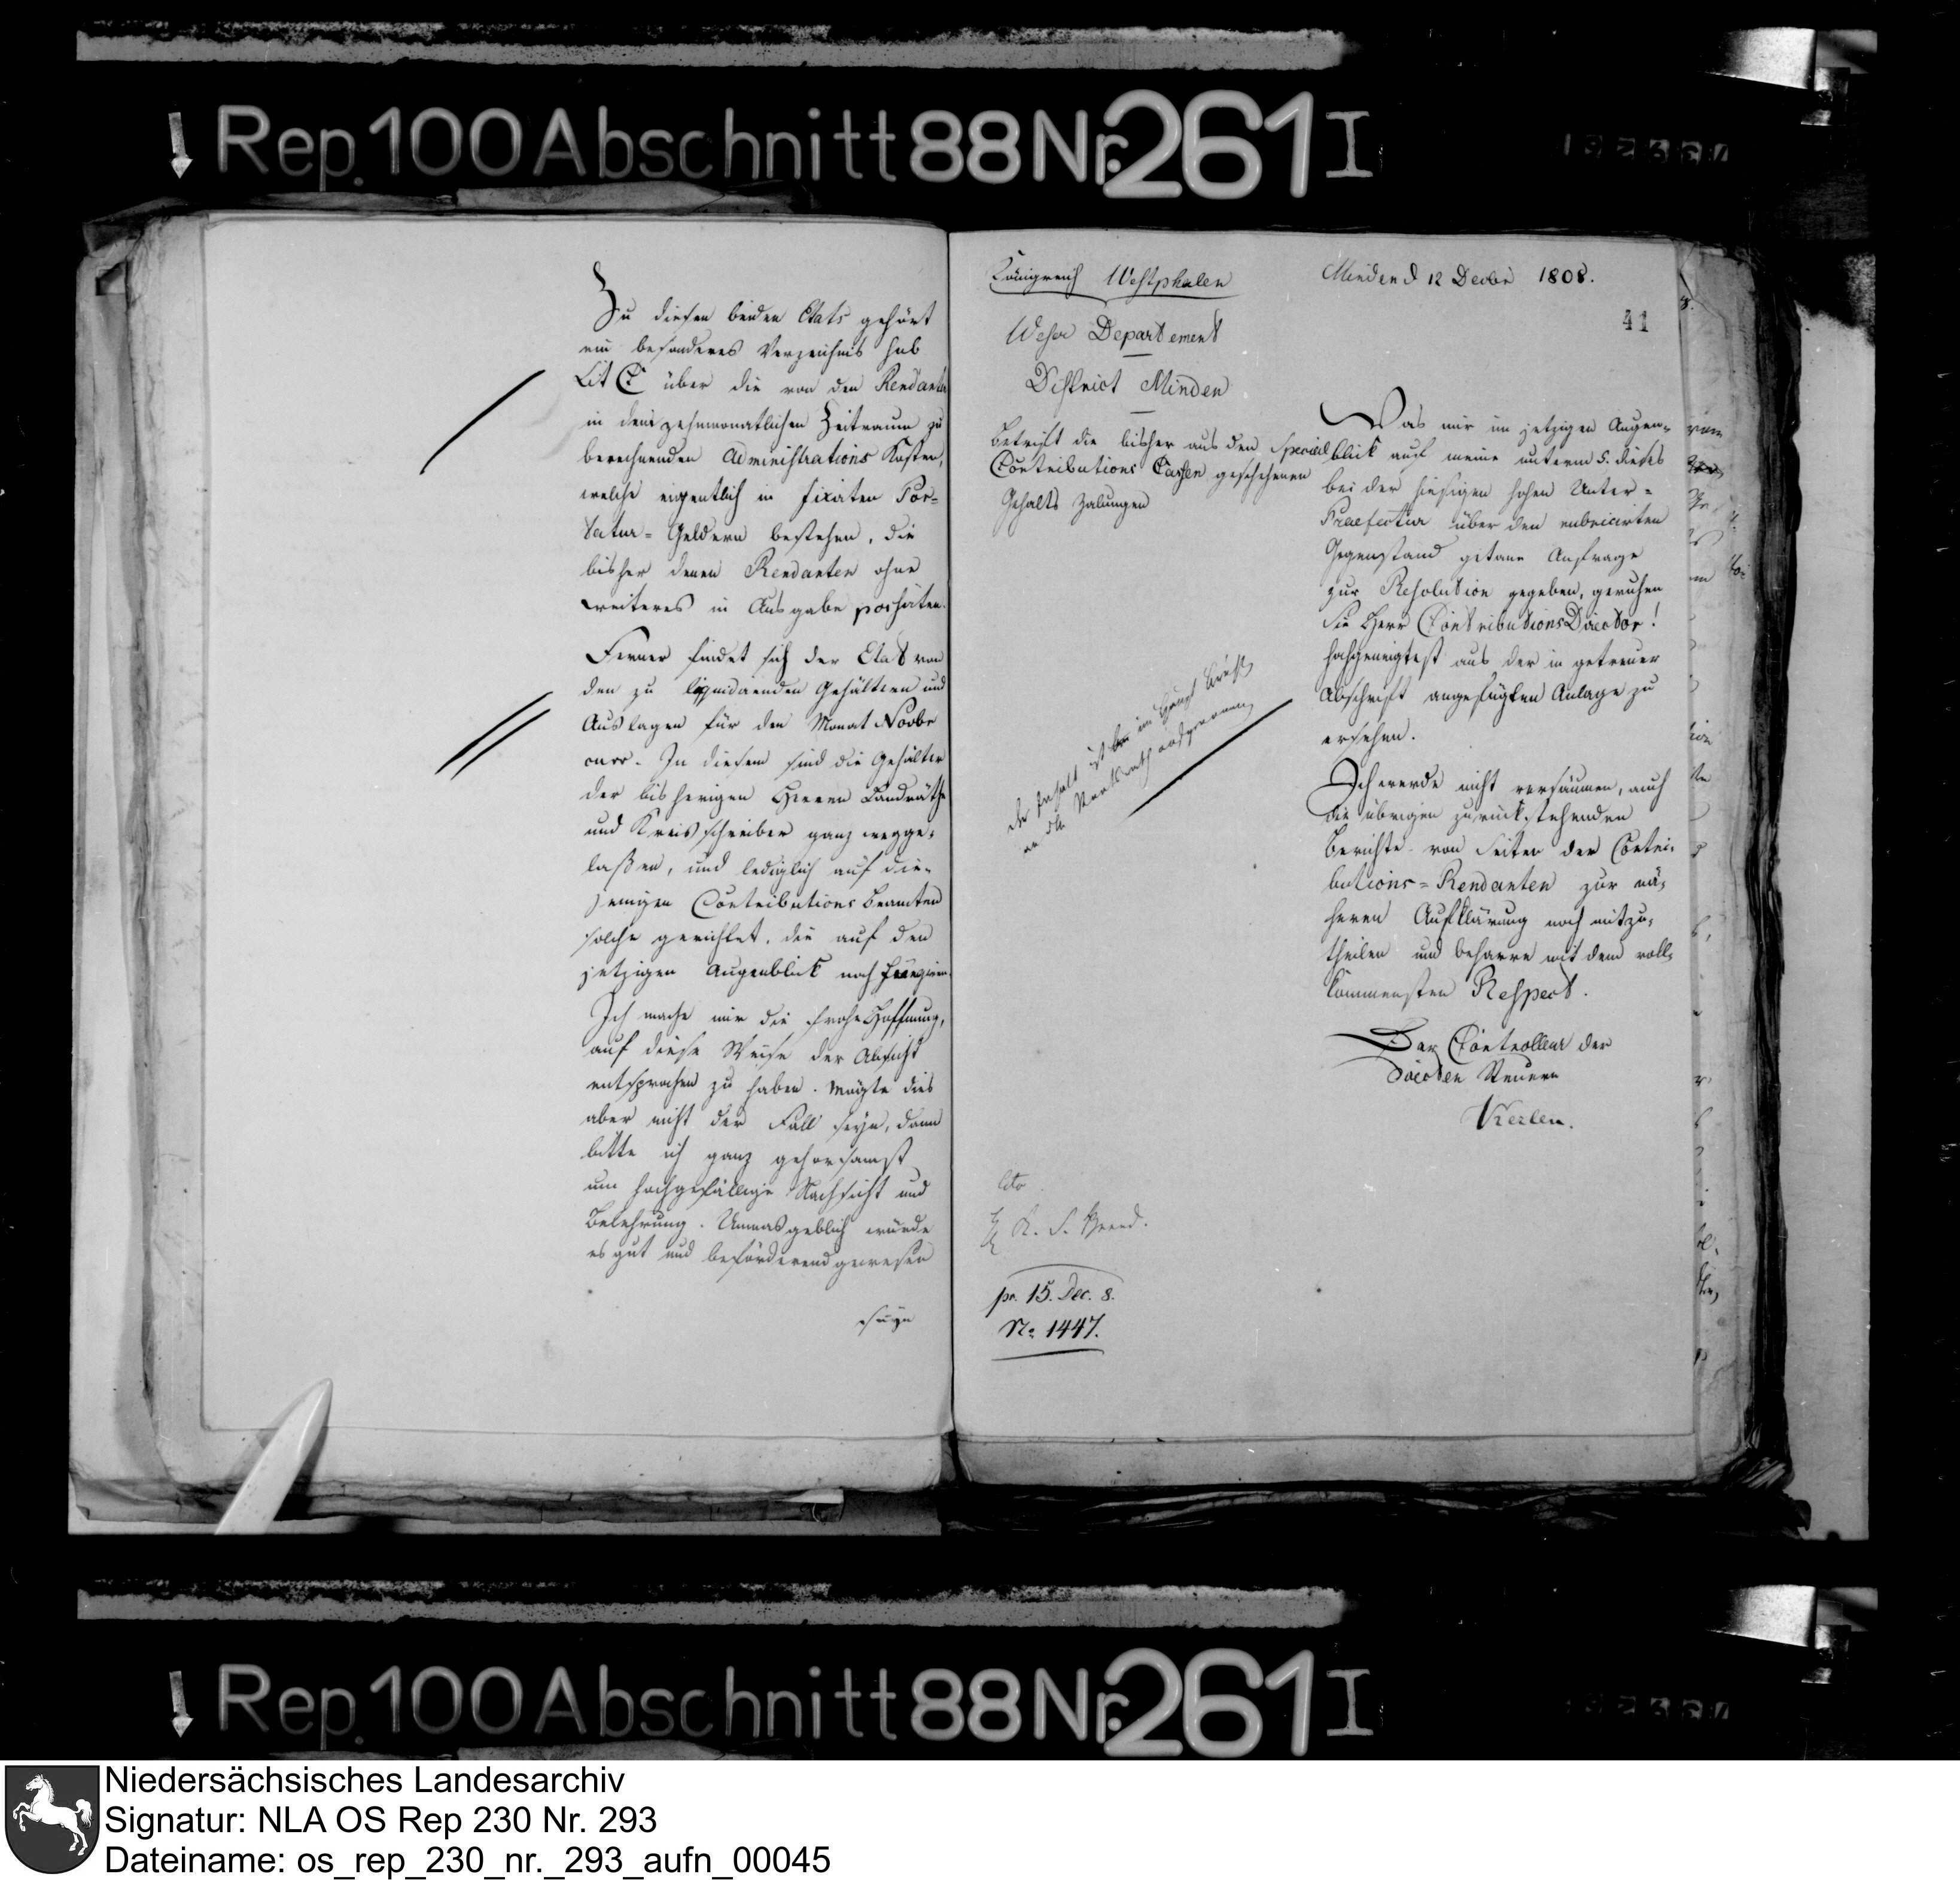 Rep. 100 Abschnitt 88 Nr. 261 I
Zu diesen beiden Etats gehört
ein besonderes Verzeichnis sub
Lit C über die von den Rendanten
in dem zehnmonatlichen Zeitraum zu
berechnenden Administrations Kosten,
welche eigentlich in fixirten Por-
tatur-Geldern bestehen, die
bisher denen Rendanten ohne
weiteres in Ausgabe
Ferner findet sich der Etat von
den zu liquidirenden Gehältern und
Auslagen für den Monat Novbr
curr. In diesem sind die Gehälter
der bisherigen Herren Landräthe
und Kreisschreiber ganz wegge-
laßen, und lediglich auf die-
jenigen Contributions Beamten
solche gerichtet, die auf den
jetzigen Augenblick noch fungiren.
Ich mache mir die frohe Hoffnung,
auf diese Weise der Absicht
entsprochen zu haben. Mögte dies
aber nicht der Fall seyn, dann
bitte ich ganz gehorsamst
um hochgefällige Nachsicht und
Belehrung. Unmasgeblich würde
es gut und befördernd gewesen
seyn
Königreich Westphalen
Weser Departement
District Minden
Betrift die bisher aus den Special
Contributions Cassen geschehenen
Gehalts Zalungen
Minden d 12 Decbr 1808.
41
Was mir im jetzigen Augen-
blick auf meine unterm 5. dieses
bei der hiesigen hohen Unter-
Praefectur über den rubricirten
Gegenstand getane Anfrage
zur Resolution gegeben, geruhen
Sie Herr Contributions Director!
hochgeneigtest aus der in getreuer
Abschrift angefügten Anlage zu
ersehen.
Ich werde nicht versäumen, auch
die übrigen zurückstehenden
Berichte von Seiten der Contri-
butions-Rendanten zur nä-
heren Aufklärung noch mitzu-
theilen und beharre mit dem voll-
kommensten Respect.
Der Controlleur der
directen Steuern
Kerlen.
der Inhalt ist im
pr. 15. Dec. 8.
No 1447.
Rep. 100 Abschnitt 88 Nr. 261 I
Niedersächsisches Landesarchiv
Signatur: NLA OS Rep 230 Nr. 293
Dateiname: os_rep_230_nr._293_aufn_00045